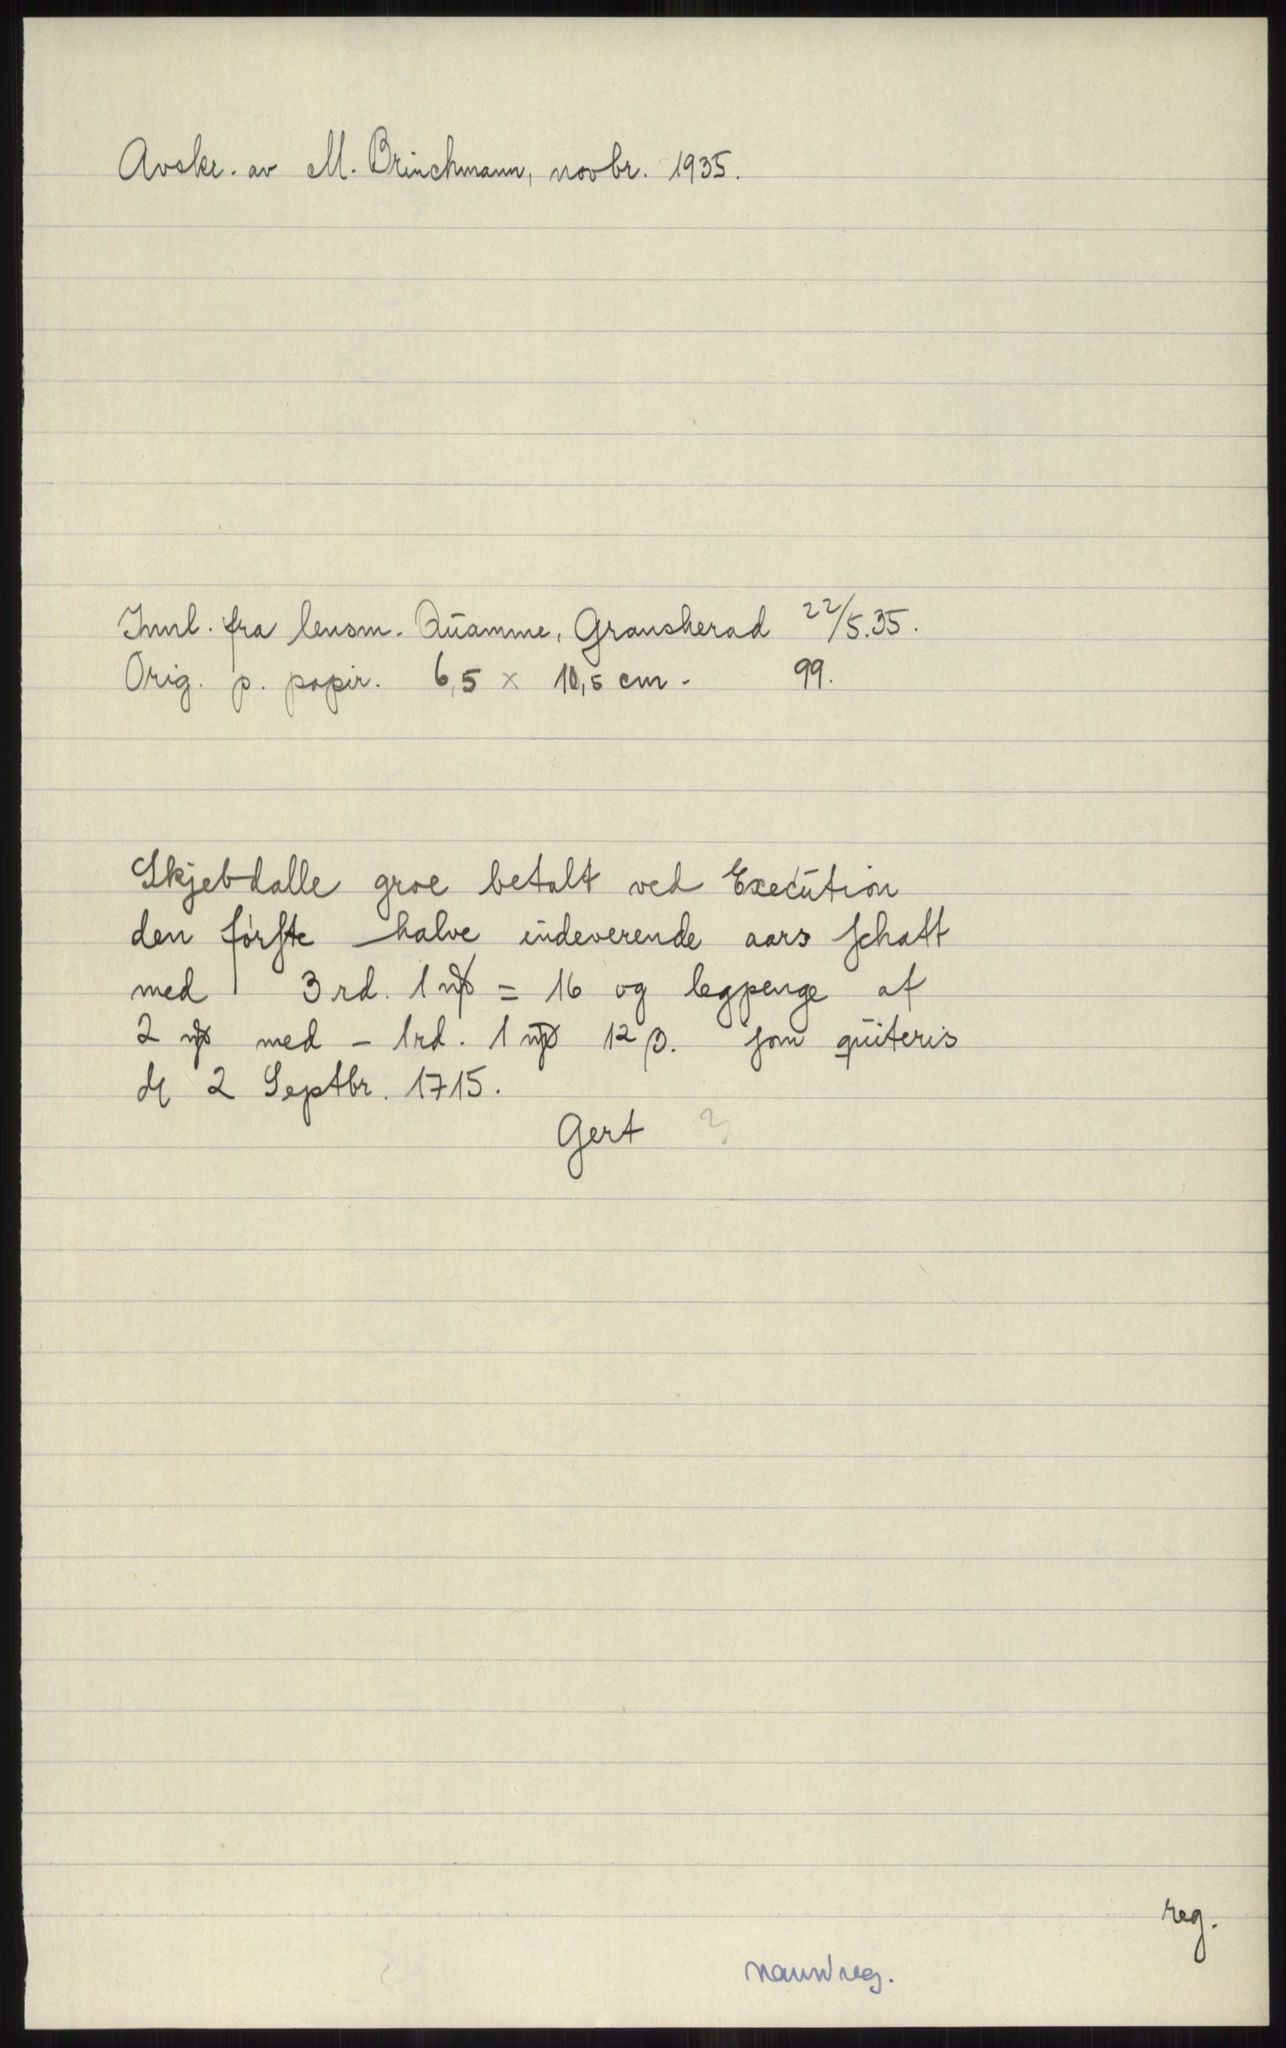 Avskr. av M. Brinchmann, novbr. 1935.
Innl. fra lensm. Qúamme, Gransherad 22/5.35.
Orig. p. papir. 6,5 × 10,5 cm. 99.
Skjebdalle groe betalt ved Execútion
den førſte halve indeverende aars ſchatt
med 3 rd. 1 = 16 og legpenge af
2 med – 1 rd. 1 12 β. ſom qúiteris
2 Septbr. 1715.
Gert ?
reg.
navnreg.